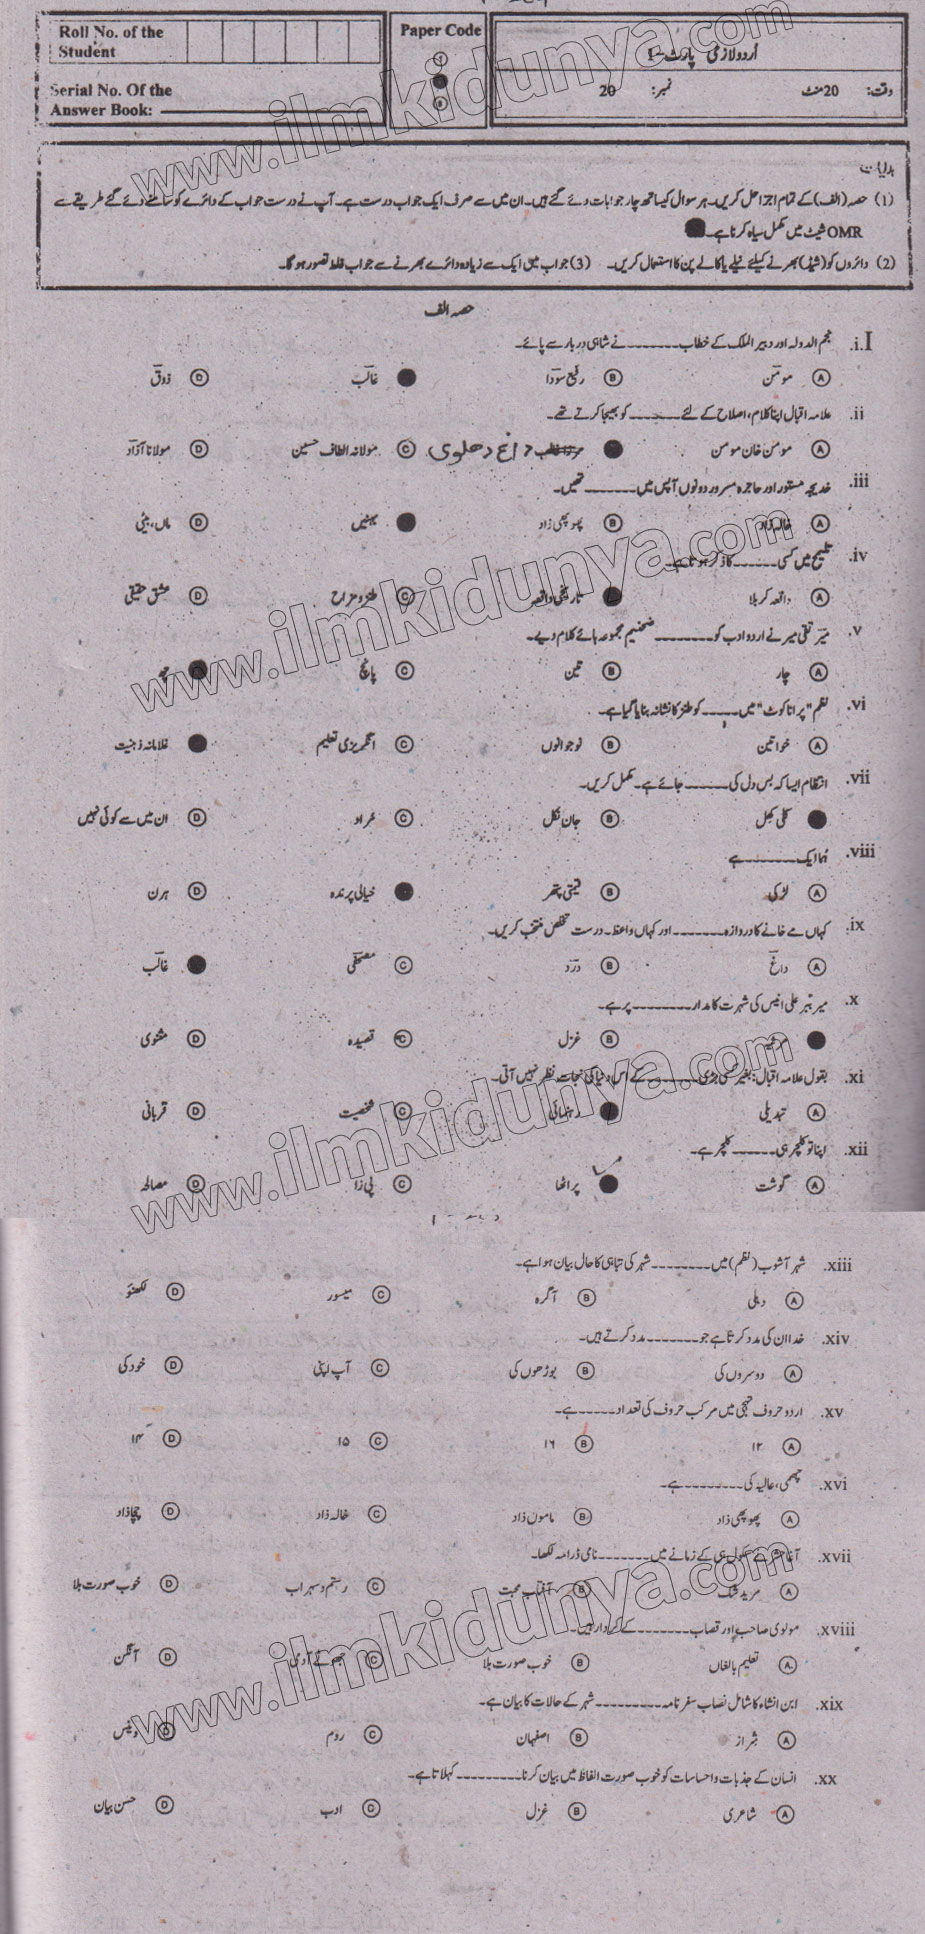 Roll No. of the
Student
Serial No. Of the
Answer Book:
Paper Code
اُردو لازمی پارٹ-I
وقت: 20 منٹ نمبر: 20
ہدایات
(1) حصہ (الف) کے تمام اجزا حل کریں۔ ہر سوال کیساتھ چار جوابات دئے گئے ہیں۔ ان میں سے صرف ایک جواب درست ہے۔ آپ نے درست جواب کے دائرے کو سامنے دئے گئے طریقے سے
OMR شیٹ میں مکمل سیاہ کرنا ہے۔
(2) دائروں کو (شیڈ) بھرنے کیلئے نیلے یا کالے پن کا استعمال کریں۔ (3) جواب میں ایک سے زیادہ دائرے بھرنے سے جواب غلط تصور ہوگا۔
حصہ الف
I.i. نجم الدولہ اور دبیر الملک کے خطاب ------- نے شاہی دربار سے پائے۔
A مومن B رفیع سودا غالب D ذوق
ii. علامہ اقبال اپنا کلام، اصلاح کے لئے ------- کو بھیجا کرتے تھے۔
A مومن خان مومن داغ دھلوی C مولانہ الطاف حسین D مولانا آزاد
iii. خدیجہ مستور اور حاجرہ مسرور دونوں آپس میں ------- تھیں۔
A خالہ زاد B پھوپھی زاد بہنیں D ماں، بیٹی
iv. تلمیح میں کسی ------- کا ذکر ہوتا ہے۔
A واقعہ کربلا تاریخی واقعہ C طنز و مزاح D عشق حقیقی
v. میر تقی میر نے اردو ادب کو ------- ضخیم مجموعہ ہائے کلام دیے۔
A چار B تین C پانچ چھ
vi. نظم "پرانا کوٹ" میں ------- کو طنز کا نشانہ بنایا گیا ہے۔
A خواتین B نوجوانوں C انگریزی تعلیم غلامانہ ذہنیت
vii. انتظام ایسا کہ بس دل کی ------- جائے ہے۔ مکمل کریں۔
کلی کھل B جان نکل C مُراد D ان میں سے کوئی نہیں
viii. ہُما ایک ------- ہے
A لڑکی B قیمتی پتھر خیالی پرندہ D ہرن
ix. کہاں مے خانے کا دروازہ ------- اور کہاں واعظ۔ درست تخلص منتخب کریں۔
A داغ B درد C مصحفی غالب
x. میر ببر علی انیس کی شہرت کا مدار ------- پر ہے۔
مرثیہ B غزل C قصیدہ D مثنوی
xi. بقول علامہ اقبال: بغیر کسی بڑی ------- کے اس دنیا کی نجات نظر نہیں آتی۔
A تبدیلی رہنمائی C شخصیت D قربانی
xii. اپنا تو کلچر ہی ------- کلچر ہے۔
A گوشت پراٹھا C پی زا D مصالحہ
xiii. شہر آشوب (نظم) میں ------- شہر کی تباہی کا حال بیان ہوا ہے۔
A دہلی B آگرہ C میسور D لکھنؤ
xiv. خدا ان کی مدد کرتا ہے جو ------- مدد کرتے ہیں۔
A دوسروں کی B بوڑھوں کی C آپ اپنی D خود کی
xv. اردو حروف تہجی میں مرکب حروف کی تعداد ------- ہے۔
A ۱۲ B ۱۶ C ۱۵ D ۱۴
xvi. چھمی، عالیہ کی ------- ہے۔
A پھوپھی زاد B ماموں زاد C خالہ زاد D چچا زاد
xvii. آغا حشر نے سکول ہی کے زمانے میں ------- نامی ڈرامہ لکھا۔
A مرید شک B آفتاب محبت C رستم و سہراب D خوب صورت بلا
xviii. مولوی صاحب اور قصاب ------- کے کردار ہیں۔
A تعلیم بالغاں B خوب صورت بلا C جھوٹے آدمی D آنگن
xix. ابن انشاء کا شامل نصاب سفر نامہ ------- شہر کے حالات کا بیان ہے۔
A شیراز B اصفہان C روم D وینس
xx. انسان کے جذبات و احساسات کو خوب صورت الفاظ میں بیان کرنا ------- کہلاتا ہے۔
A شاعری B غزل C ادب D حسن بیان
www.ilmkidunya.com
www.ilmkidunya.com
www.ilmkidunya.com
www.ilmkidunya.com